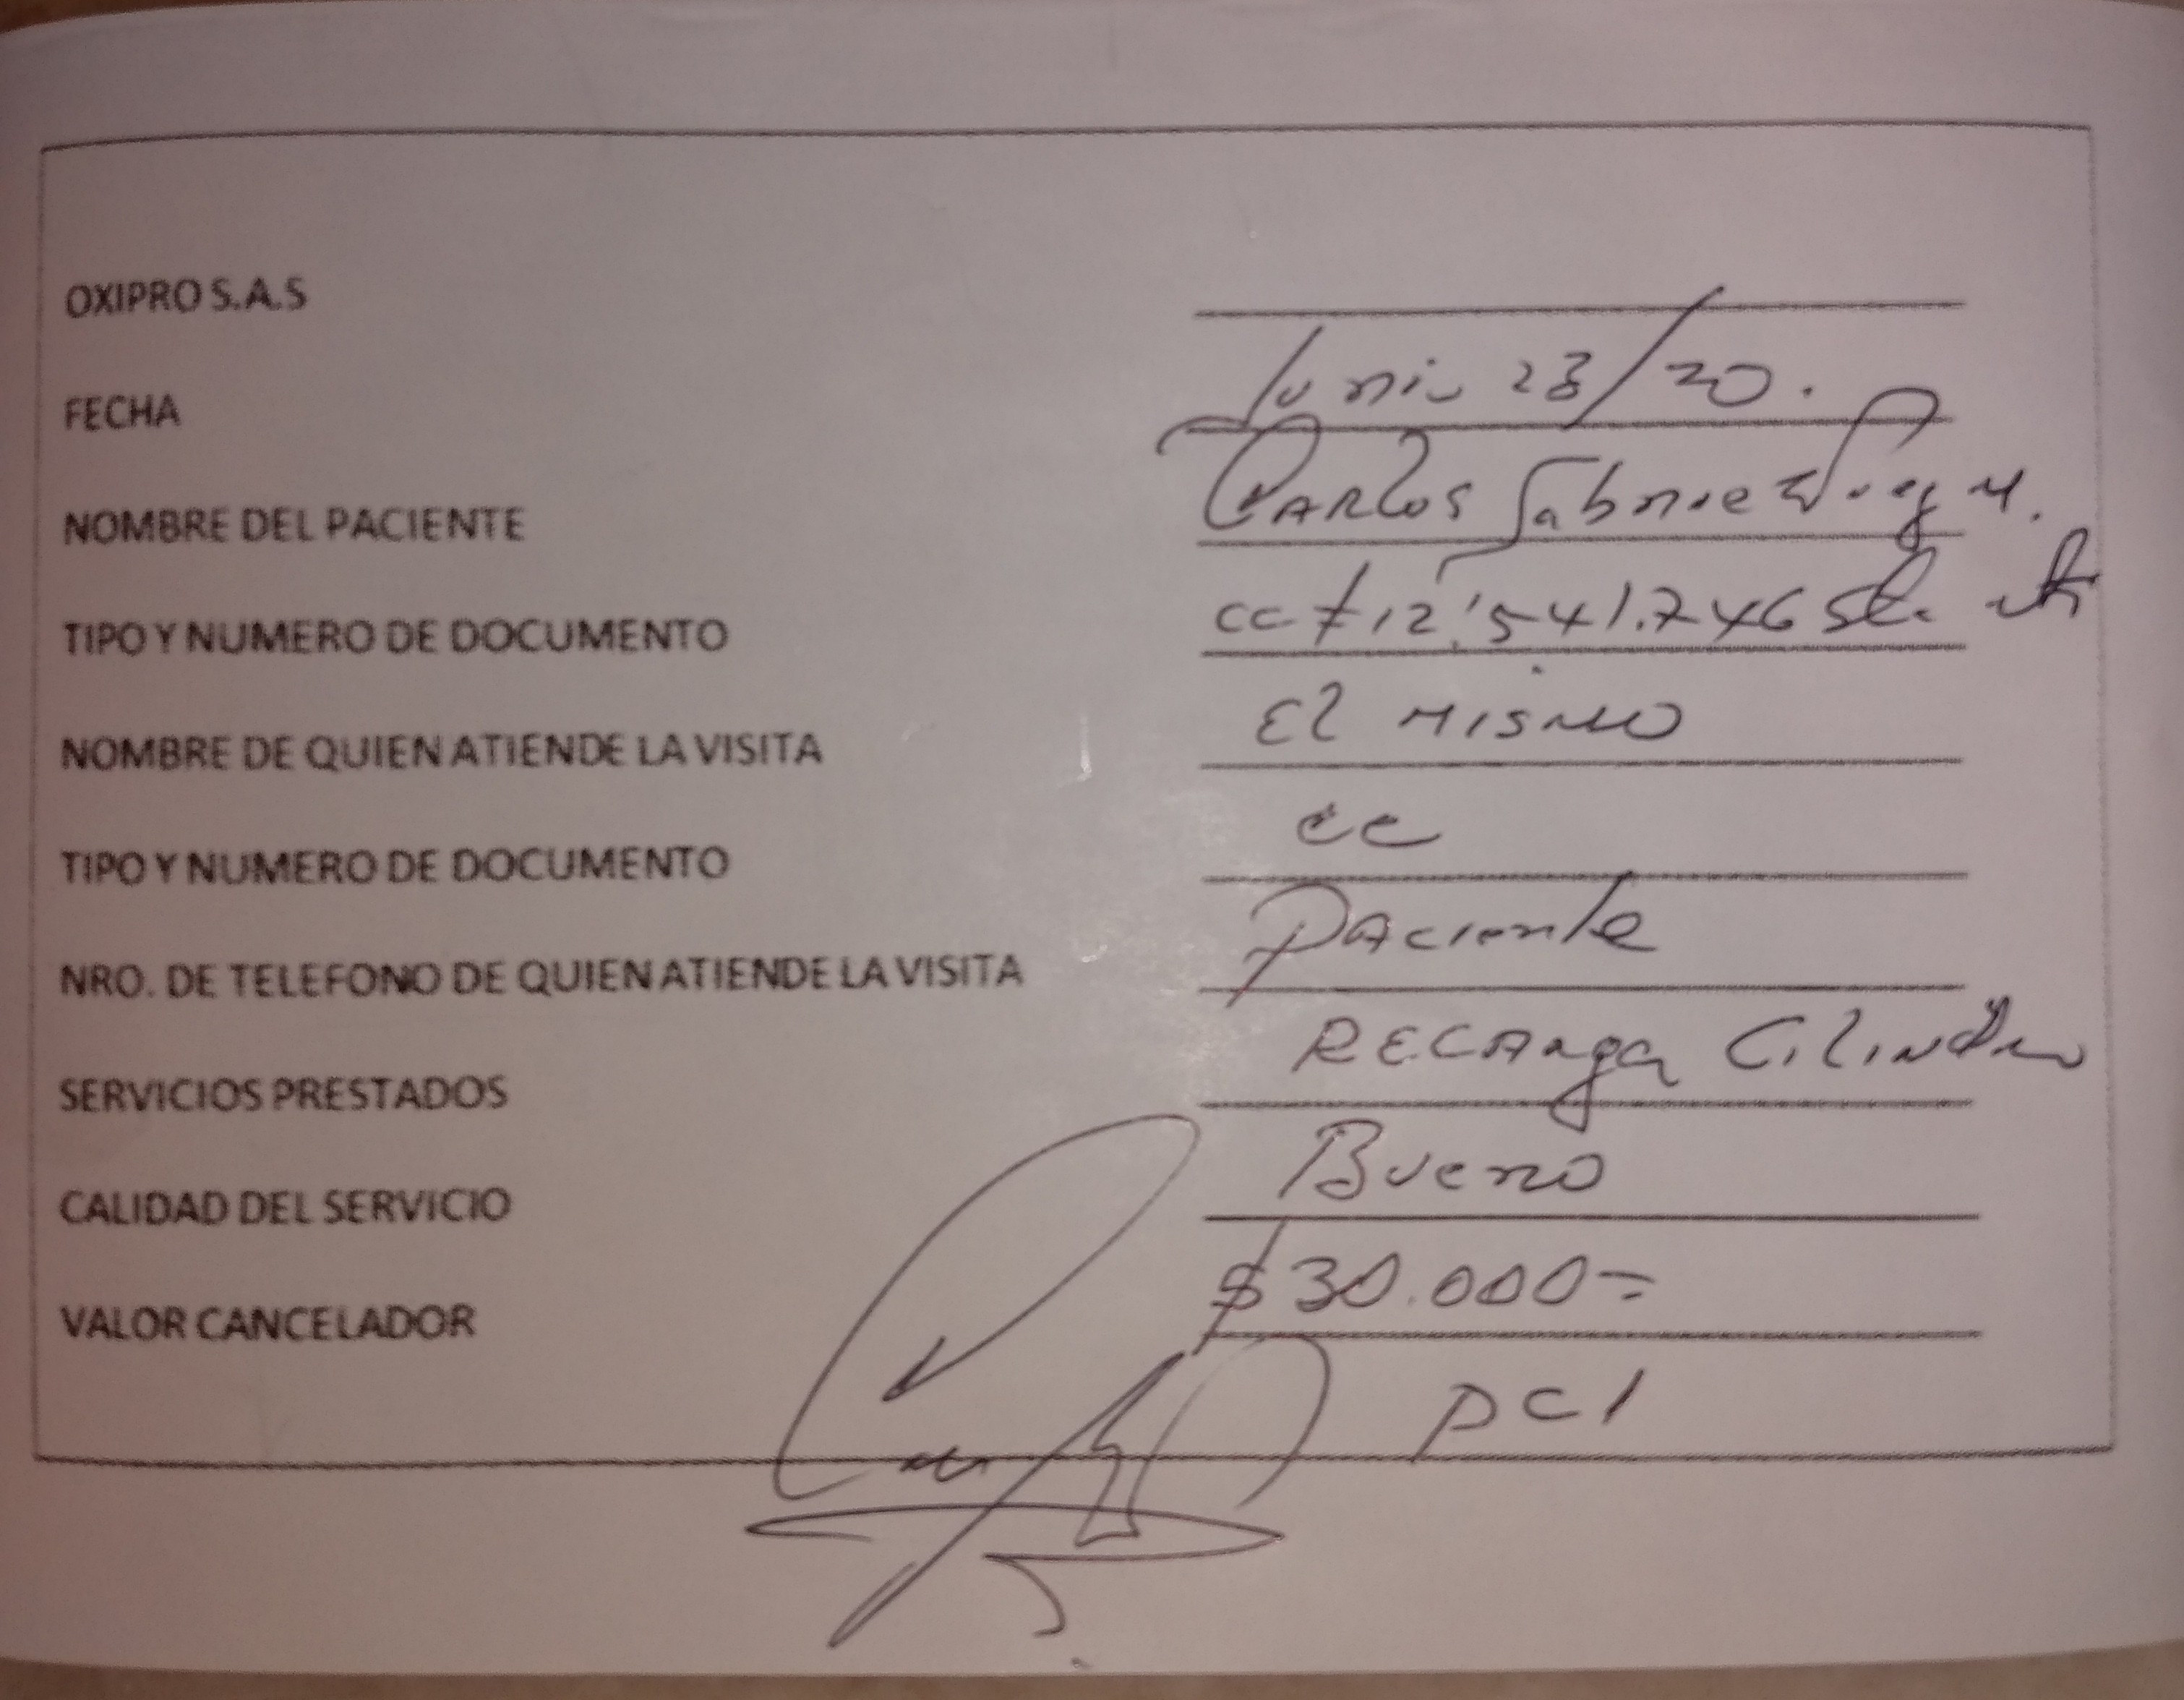 OXIPRO S.A.S
FECHA Junio 23/20.
NOMBRE DEL PACIENTE Carlos Gabriel
TIPO Y NUMERO DE DOCUMENTO cc # 12'541.746 Sta
NOMBRE DE QUIEN ATIENDE LA VISITA El mismo
TIPO Y NUMERO DE DOCUMENTO cc
NRO. DE TELEFONO DE QUIEN ATIENDE LA VISITA Paciente
SERVICIOS PRESTADOS RECArga Cilindro
CALIDAD DEL SERVICIO Bueno
VALOR CANCELADOR $30.000=